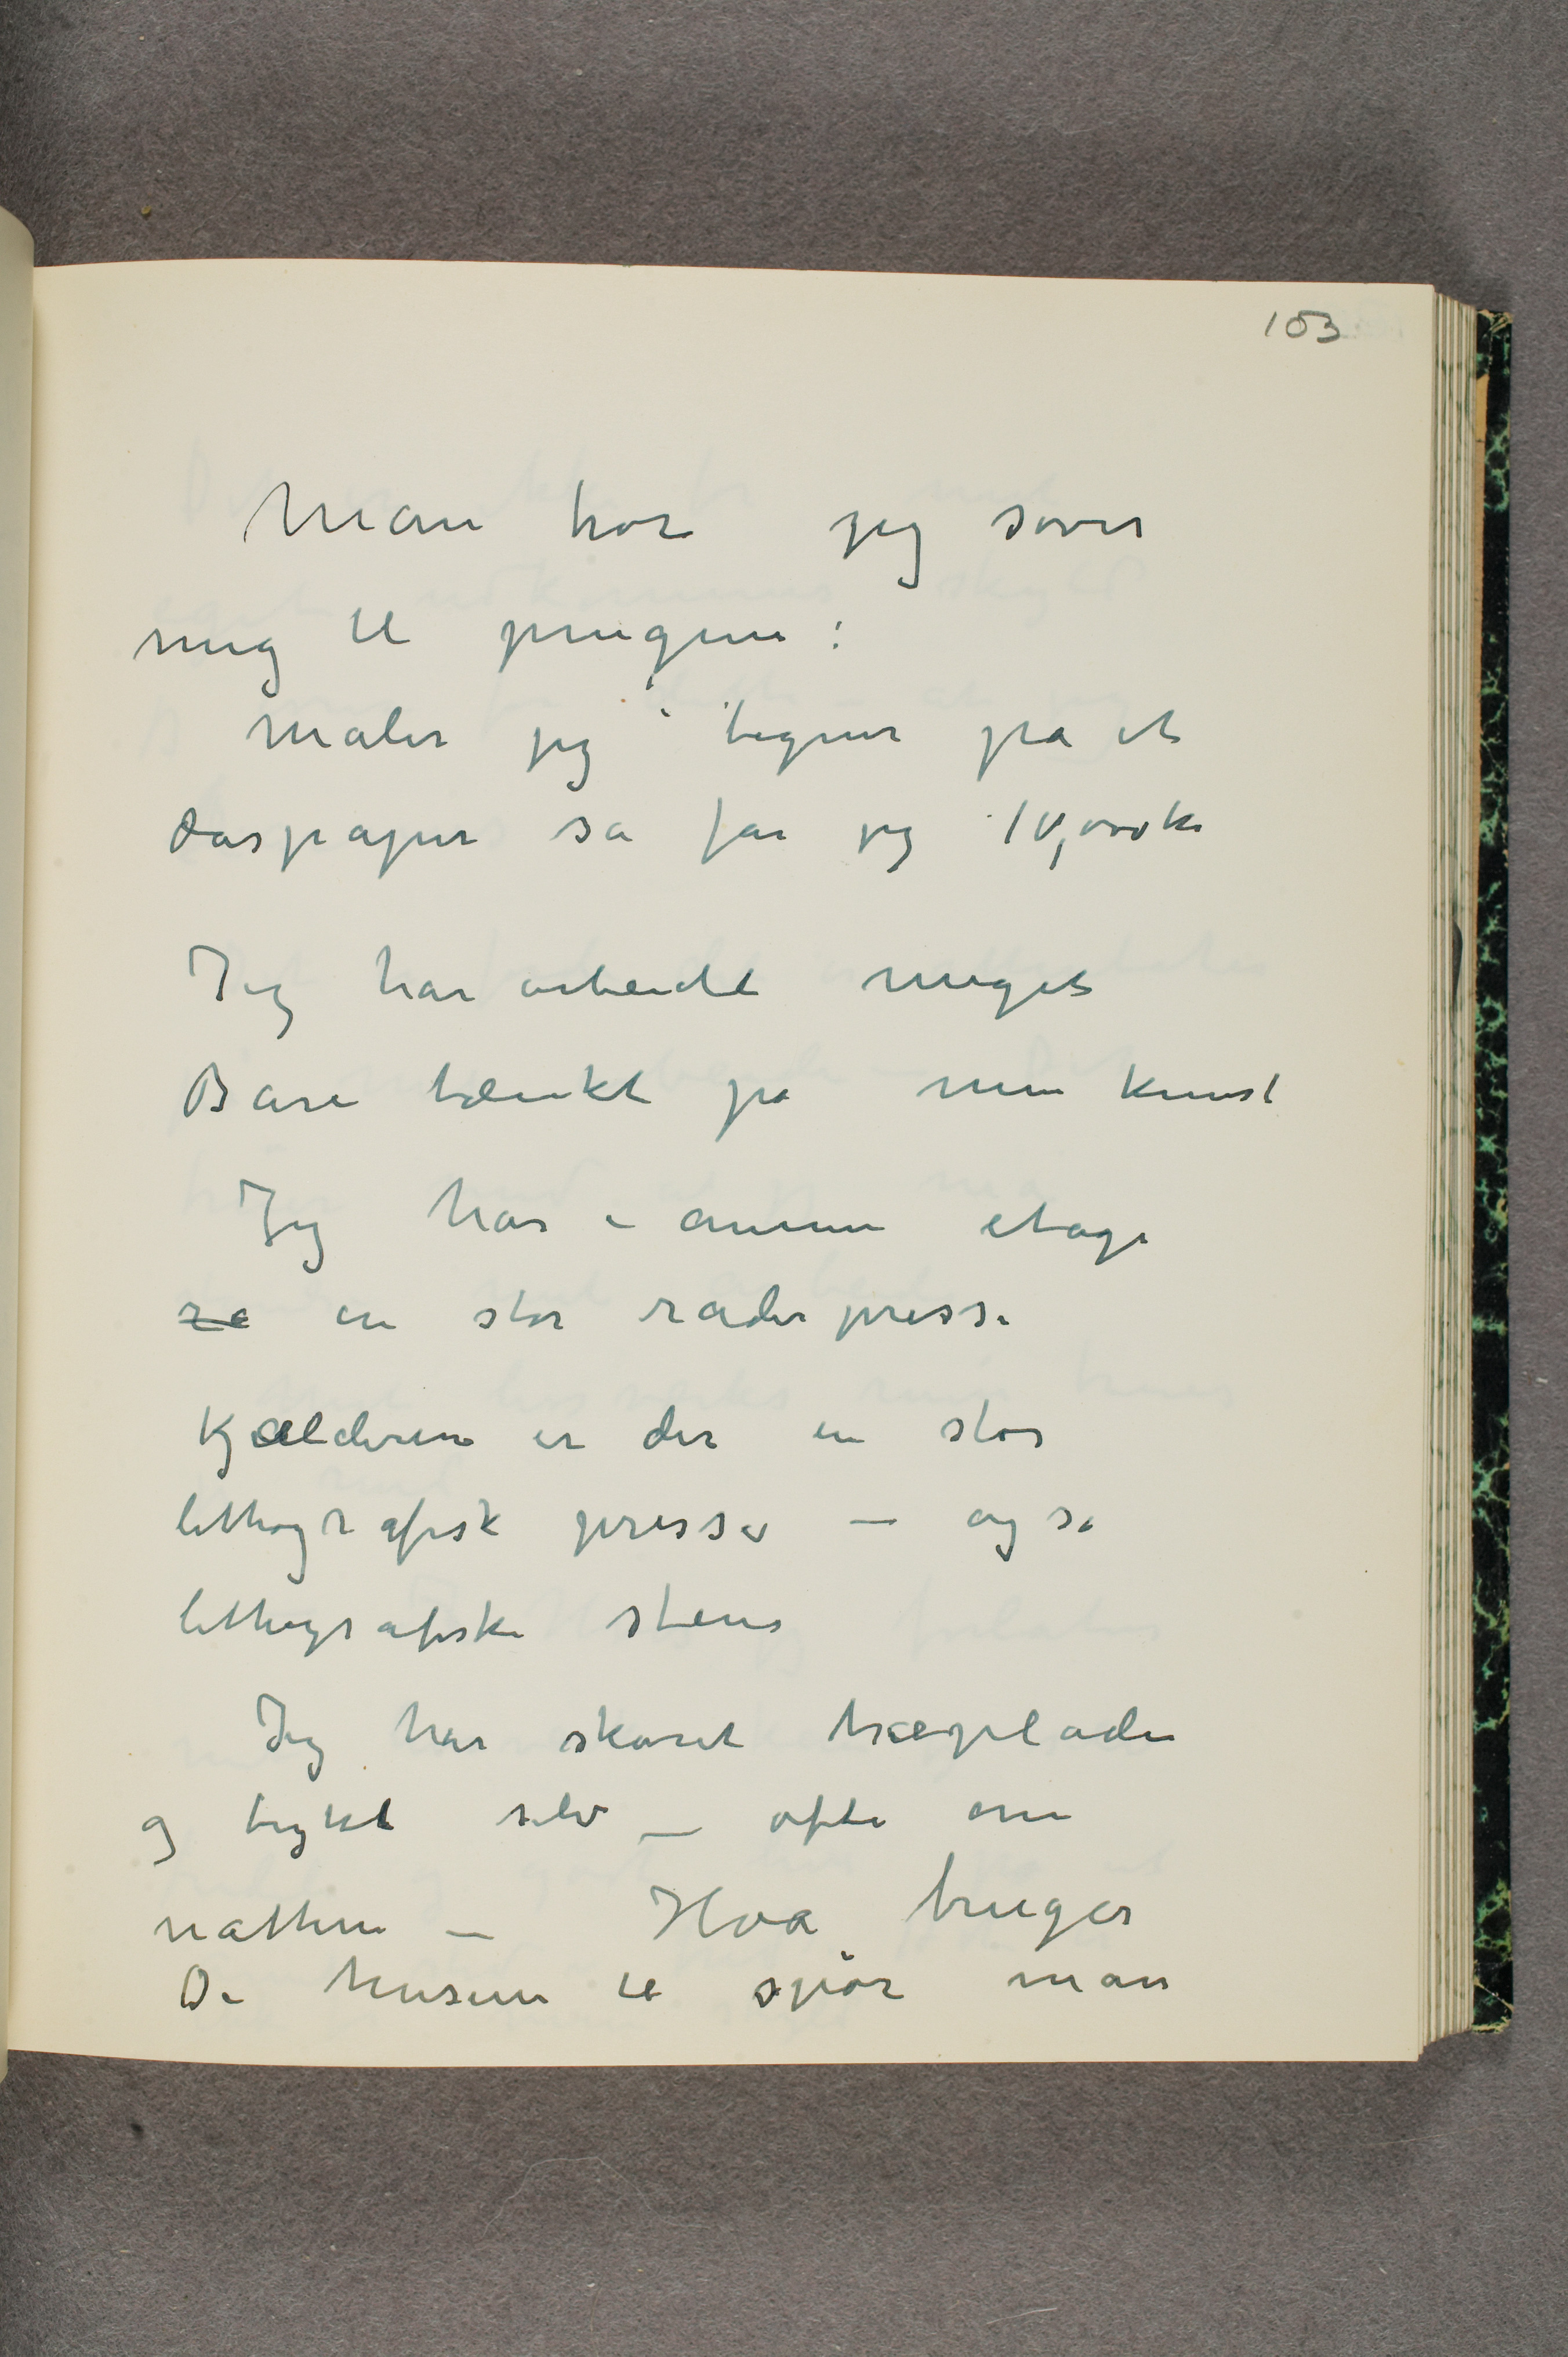 103
Man tror jeg sover
mig til pengene:
Maler jeg tegner på et
daspapir så får jeg 10,000 kr
Jeg har arbeidet meget
Bare tænkt på min kunst
Jeg har i annen etage
ra en stor raderpresse
Kjælderen er der en stor
lithografisk presse – også
lithografiske stene
Jeg har skåret træplader
og trykket selv – ofte om
natten – Hva bruger
De husene til spør man